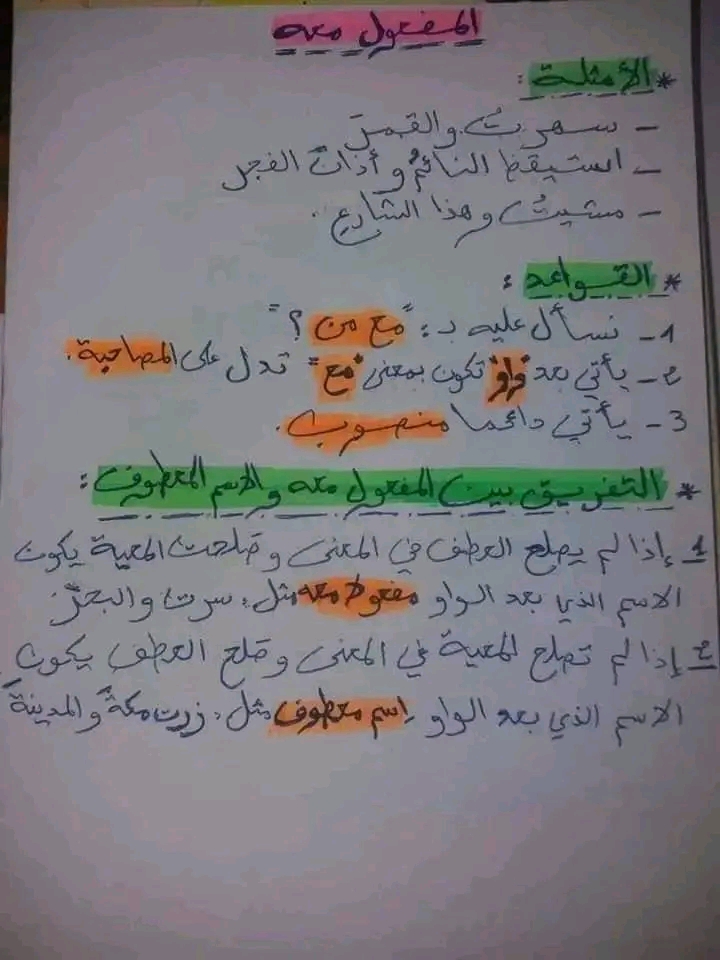 المفعول معه
* الأمثلة :
- سهرتُ والقمرَ
- استيقظ النائمُ وأذانَ الفجر
- مشيتُ وهذا الشارع.
* القواعد :
1- نسأل عليه بـ : "مع من ؟"
2- يأتي بعد "واو" تكون بمعنى "مع" تدل على المصاحبة.
3- يأتي دائما منصوب.
* التفريق بين المفعول معه والاسم المعطوف :
1 إذا لم يصلح العطف في المعنى وصلحت المعية يكون
الاسم الذي بعد الواو مفعولا معه مثل: سرت والبحرَ
2 إذا لم تصلح المعية في المعنى وصلح العطف يكون
الاسم الذي بعد الواو اسم معطوف مثل: زرت مكةً والمدينةً